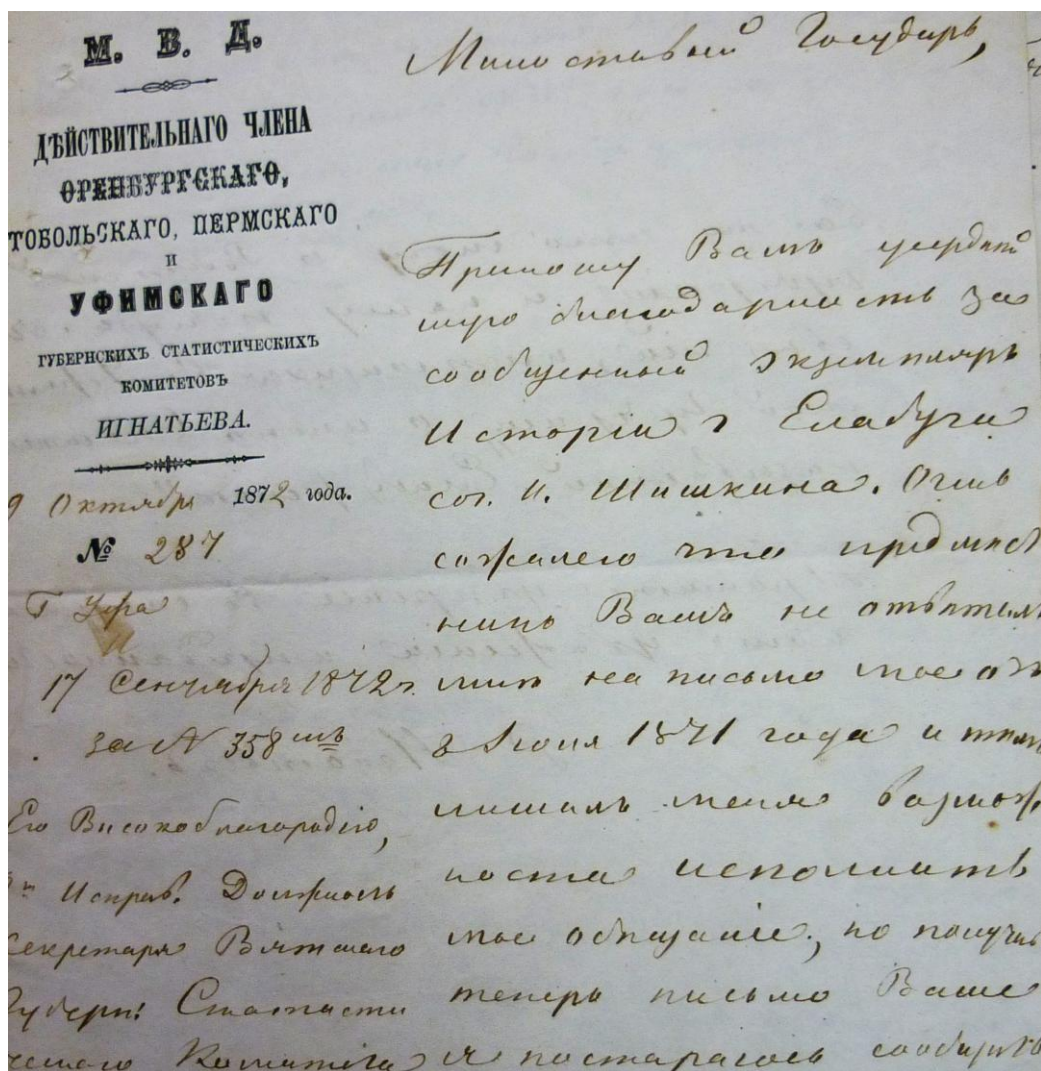 М. В. Д.
ДѢЙСТВИТЕЛЬНАГО ЧЛЕНА
ОРЕНБУРГСКАГО,
ТОБОЛЬСКАГО, ПЕРМСКАГО
И
УФИМСКАГО
ГУБЕРНСКИХЪ СТАТИСТИЧЕСКИХЪ
КОМИТЕТОВЪ
ИГНАТЬЕВА.
9 Октября 1872 года.
№ 287
Г Уфа
17 Сентября 1872 г.
за N 358
Его Высокоблагородію,
Исправ. Должность
Секретаря Вятскаго
Губерн. Статисти
ческаго Комитета
Милостивый Государь,
Приношу Вамъ усердней
шую благодарность за
сообщенный экземпляръ
Исторіи г Елабуги
соч. И. Шишкина. Очень
сожалею что предмест
никъ Вашъ не ответилъ
мнѣ на письмо мое отъ
2 Іюня 1871 года и темъ
лишилъ меня возмож
ности исполнить
мое обещаніе, но получивъ
теперь письмо Ваше
я постараюсь сообщить